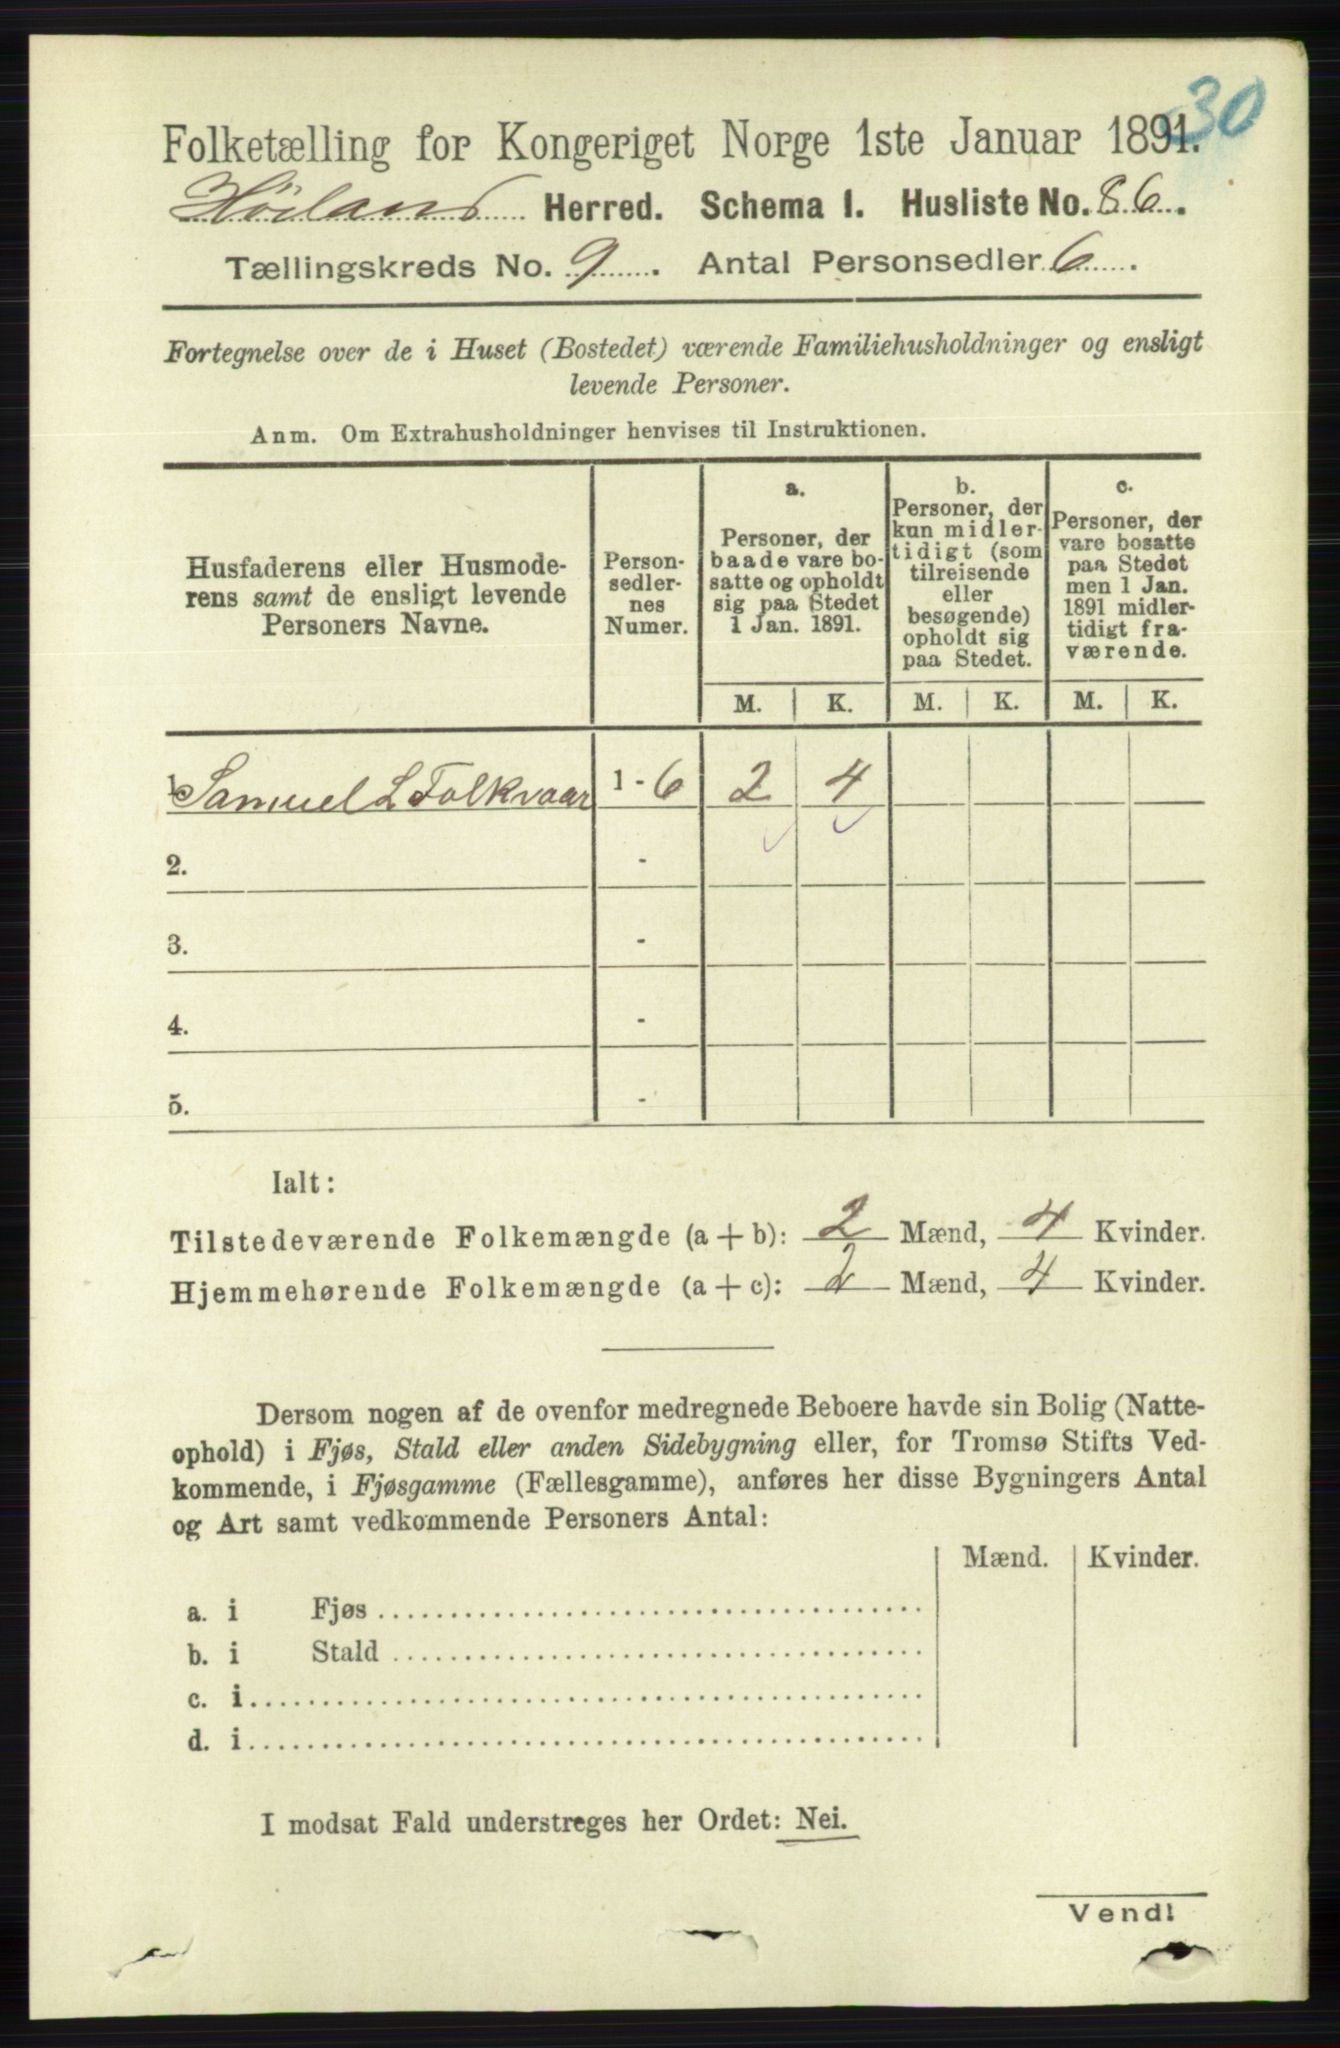 30
Folketælling for Kongeriget Norge 1ste Januar 1891.
Höiland Herred. Schema 1. Husliste No. 86.
Tællingskreds No. 9. Antal Personsedler 6.
Fortegnelse over de i Huset (Bostedet) værende Familiehusholdninger og ensligt
levende Personer.
Anm. Om Extrahusholdninger henvises til Instruktionen.
Husfaderens eller Husmode-
rens samt de ensligt levende
Personers Navne.
Person-
sedler-
nes
Numer.
a.
Personer, der
baade vare bo-
satte og opholdt
sig paa Stedet
1 Jan. 1891.
b.
Personer, der
kun midler-
tidigt (som
tilreisende
eller
besøgende)
opholdt sig
paa Stedet.
c.
Personer, der
vare bosatte
paa Stedet
men 1 Jan.
1891 midler-
tidigt fra-
værende.
M. K. M. K. M. K.
1. Samuel L Folkvaar 1 - 6 2 4
2. -
3. -
4. -
5. -
Ialt:
Tilstedeværende Folkemængde (a + b): 2 Mænd, 4 Kvinder.
Hjemmehørende Folkemængde (a + c): 2 Mænd, 4 Kvinder.
Dersom nogen af de ovenfor medregnede Beboere havde sin Bolig (Natte-
ophold) i Fjøs, Stald eller anden Sidebygning eller, for Tromsø Stifts Ved-
kommende, i Fjøsgamme (Fællesgamme), anføres her disse Bygningers Antal
og Art samt vedkommende Personers Antal:
Mænd. Kvinder.
a. i Fjøs
b. i Stald
c. i
d. i
I modsat Fald understreges her Ordet: Nei.
Vend!